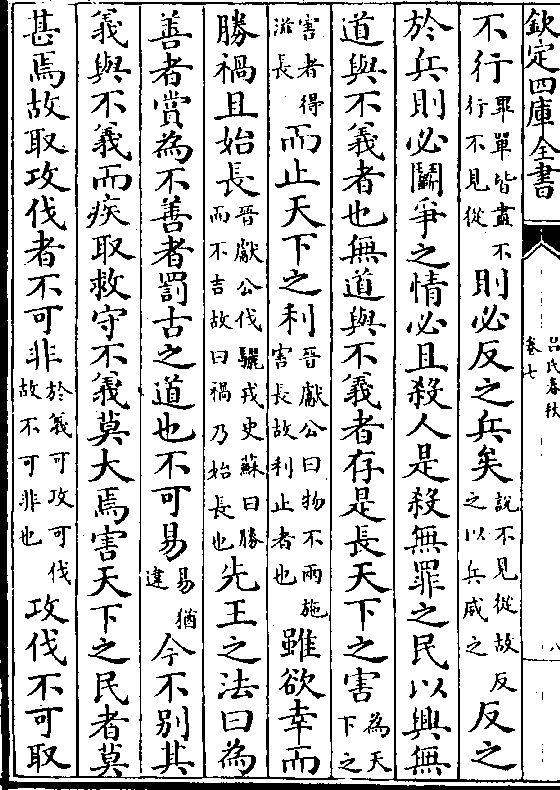 欽定四庫全書
呂氏春秋
卷七
八
不行單單皆盡不行不見從則必反之兵矣說不見從故反之以兵威之反之
於兵則必鬬爭之情必且殺人是殺無罪之民以興無
道與不義者也無道與不義者存是長天下之害為天下之
害者得滋長而止天下之利晉獻公曰物不兩施害長故利止者也雖欲幸而
勝禍且始長晉獻公伐驪戎史蘇曰勝而不吉故曰禍乃始長也先王之法曰為
善者賞為不善者罰古之道也不可易易猶違今不别其
義與不義而疾取救守不義莫大焉害天下之民者莫
甚焉故取攻伐者不可非於義可攻可伐故不可非也攻伐不可取